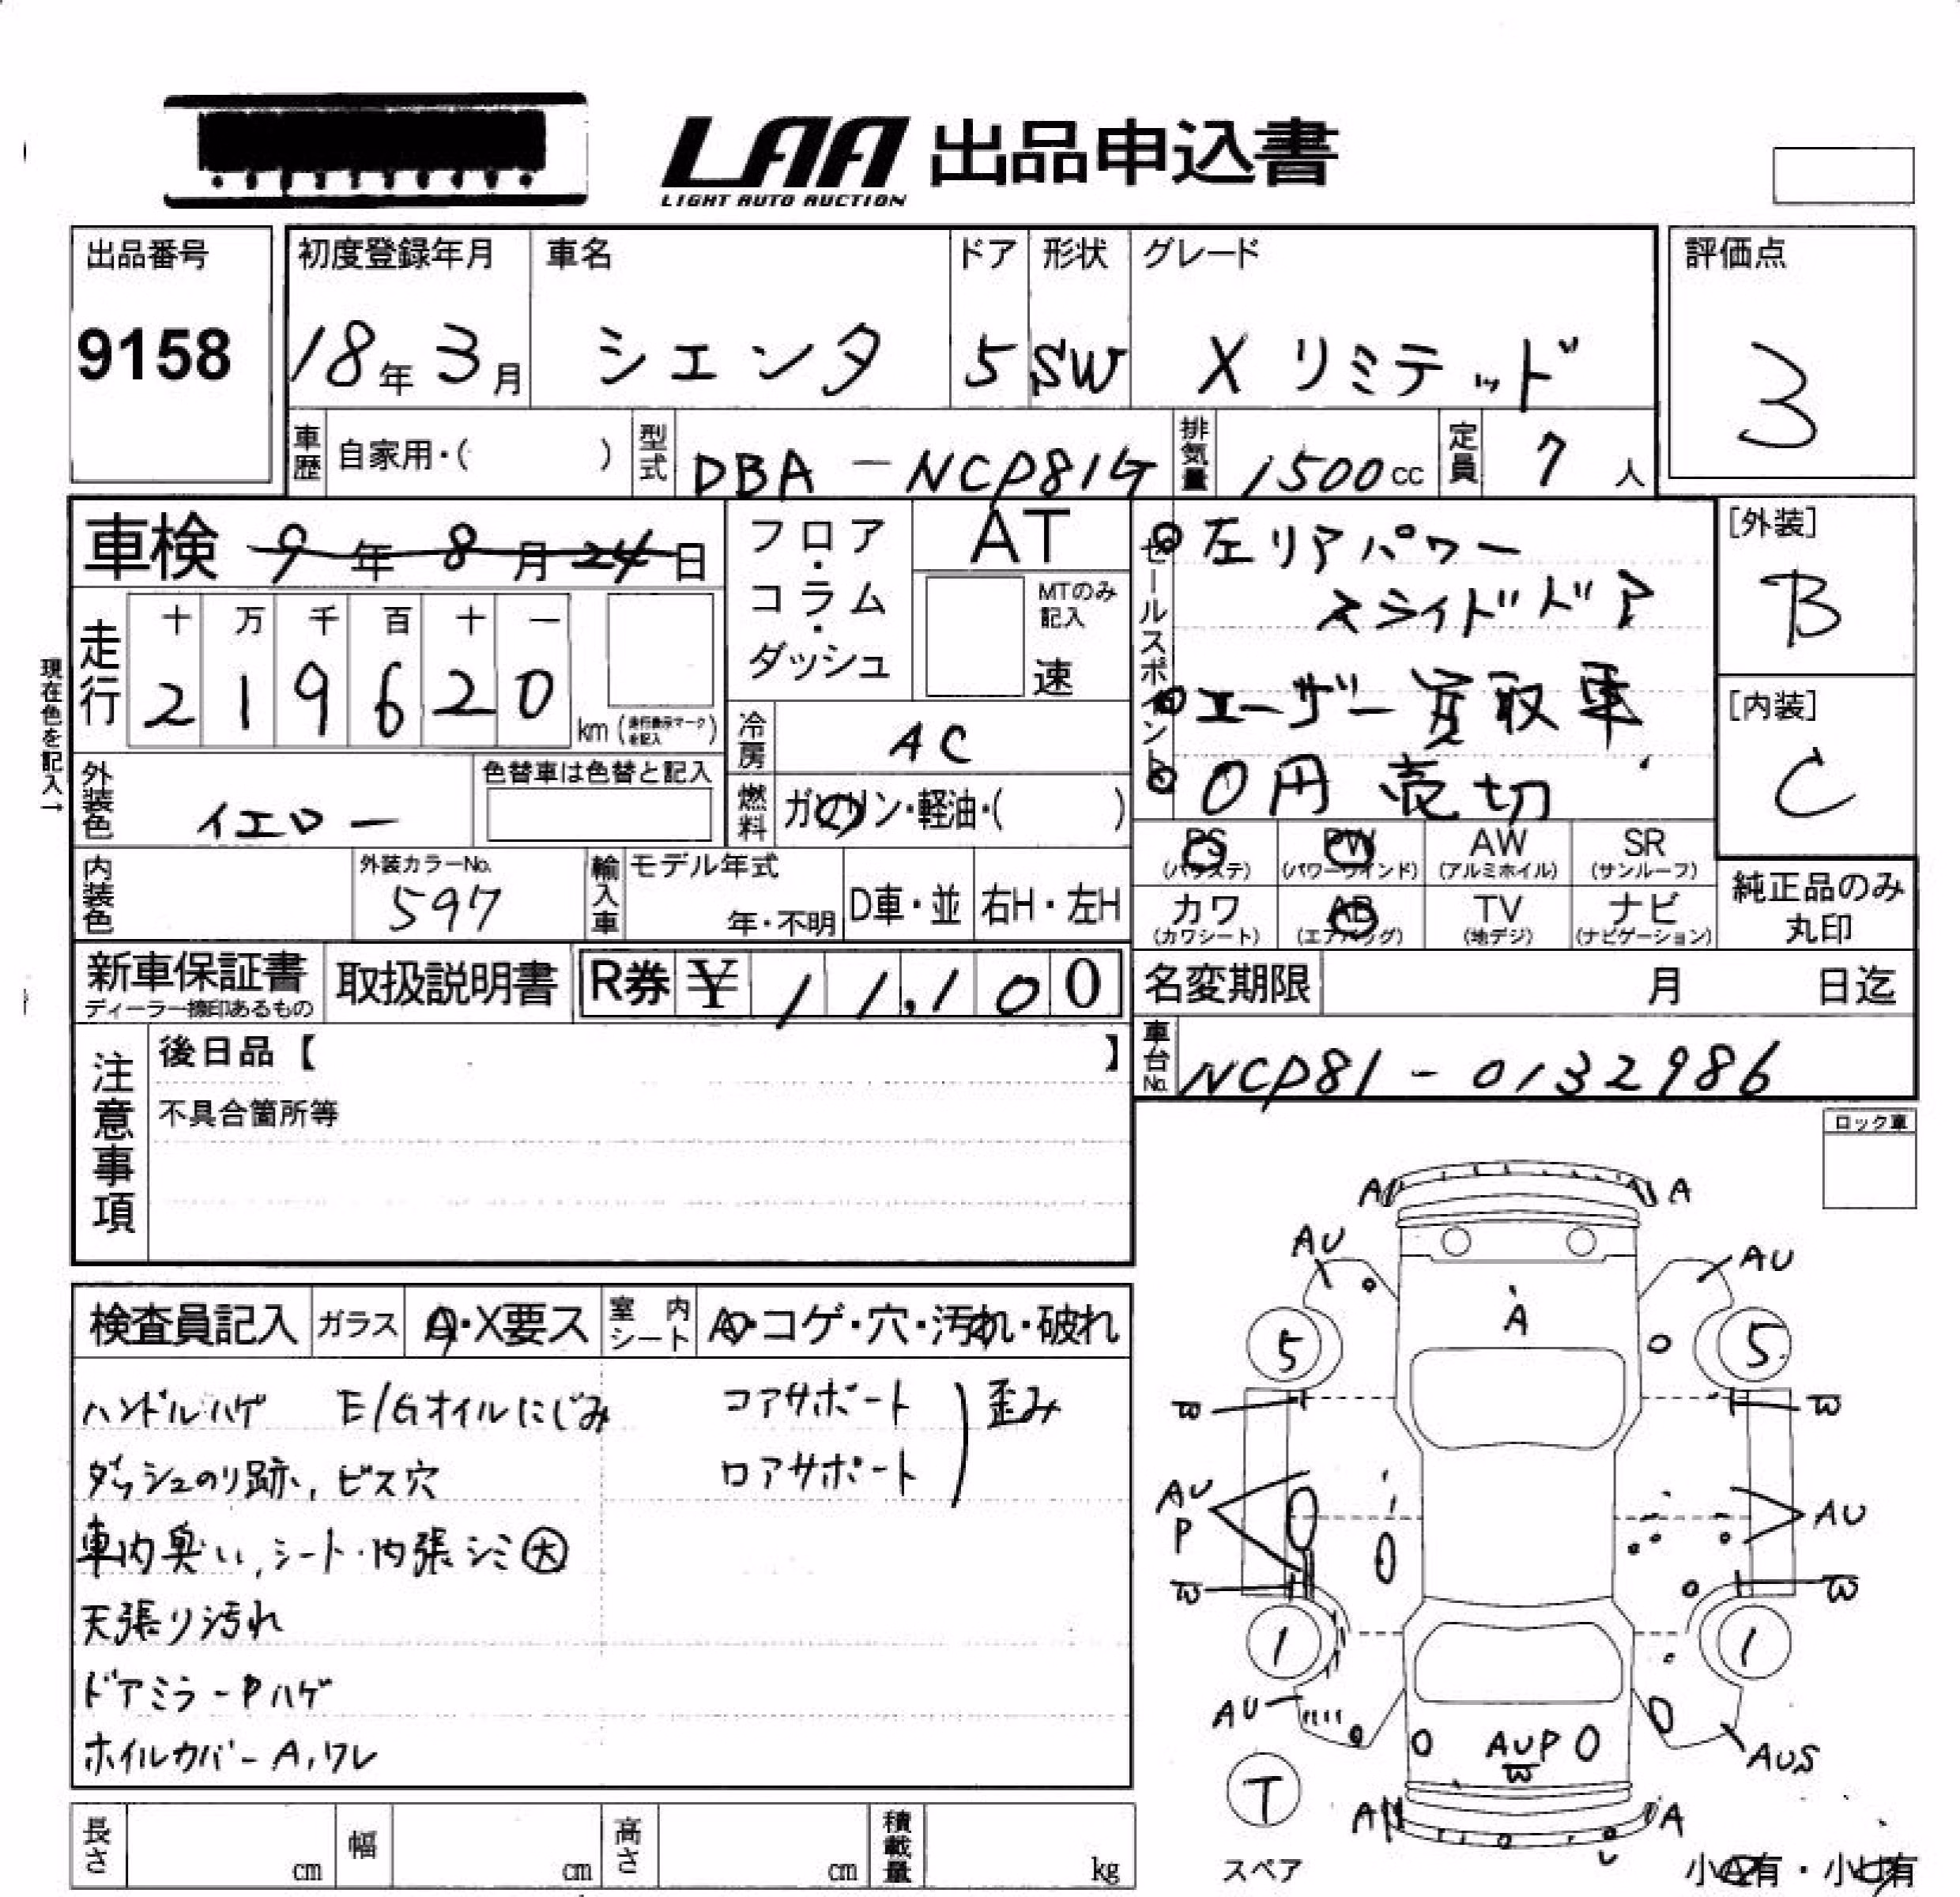 LAA 出品申込書
LIGHT AUTO AUCTION
出品番号
9158
初度登録年月
18年 3月
車名
シエンタ
ドア
5
形状
SW
グレード
X リミテッド
評価点
3
車歴 自家用・( )
型式 DBA-NCP81G
排気量 1500cc
定員 7人
車検 9年 8月 24日
フロア・コラム・ダッシュ
AT
MTのみ記入
速
セールスポイント
左リアパワー
スライドドア
ユーザー買取車
0円売切
[外装]
B
[内装]
C
現在色を記入→
走行
十 万 千 百 十 一
2 1 9 6 2 0
km (走行表示マークを記入)
冷房 AC
外装色 イエロー
色替車は色替と記入
燃料 ガソリン・軽油・( )
PS (パワステ)
PW (パワーウインド)
AW (アルミホイル)
SR (サンルーフ)
カワ (カワシート)
AB (エアバッグ)
TV (地デジ)
ナビ (ナビゲーション)
純正品のみ丸印
内装色
外装カラーNo. 597
輸入車
モデル年式
年・不明
D車・並
右H・左H
新車保証書
ディーラー捺印あるもの
取扱説明書
R券 ¥ 11,100
名変期限 月 日迄
車台No. NCP81-0132986
注意事項
後日品【 】
不具合箇所等
ロック車
検査員記入
ガラス A・X要ス
室内シート A・コゲ・穴・汚れ・破れ
ハンドルハゲ E/Gオイルにじみ
コアサポート
ロアサポート
歪み
ダッシュのり跡、ビス穴
車内臭い、シート・内張シミ大
天張り汚れ
ドアミラーPハゲ
ホイルカバーA、ワレ
A A
AU AU
A
5 5
W W
AU P
AU
W W
1 1
AU
AUP
W
AUS
T
スペア
A A
小A有・小U有
長さ cm
幅 cm
高さ cm
積載量 kg